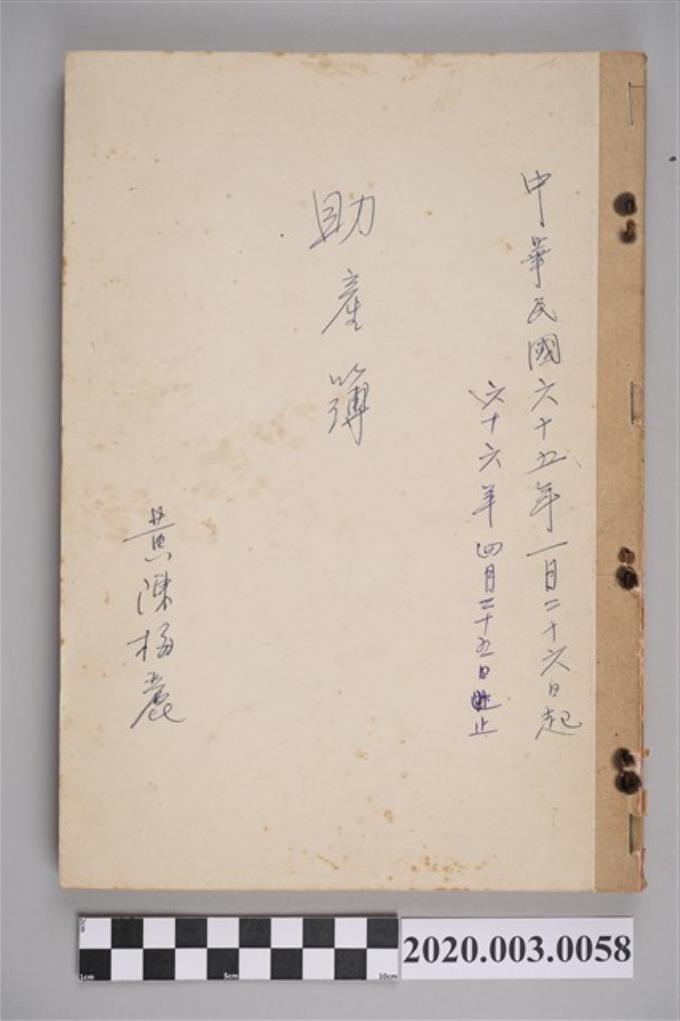 中華民國六十五年一月二十六日起
六十六年四月二十五日止
助產簿
黃陳梅麗
1cm 5cm 10cm
2020.003.0058